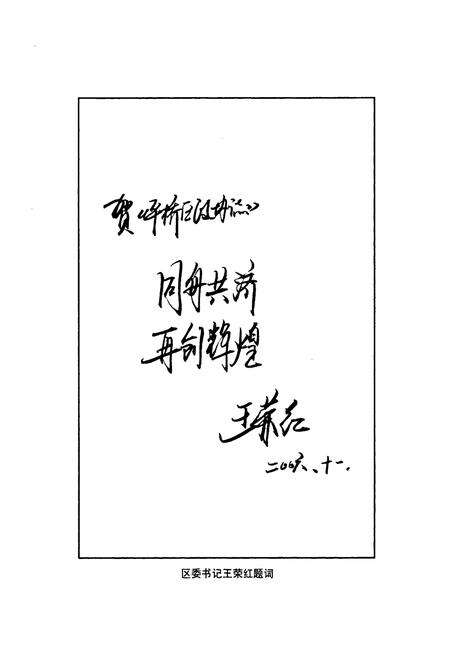 贺《平桥区政协志》
同舟共济
再创辉煌
王荣红
二00六、十一.
区委书记王荣红题词